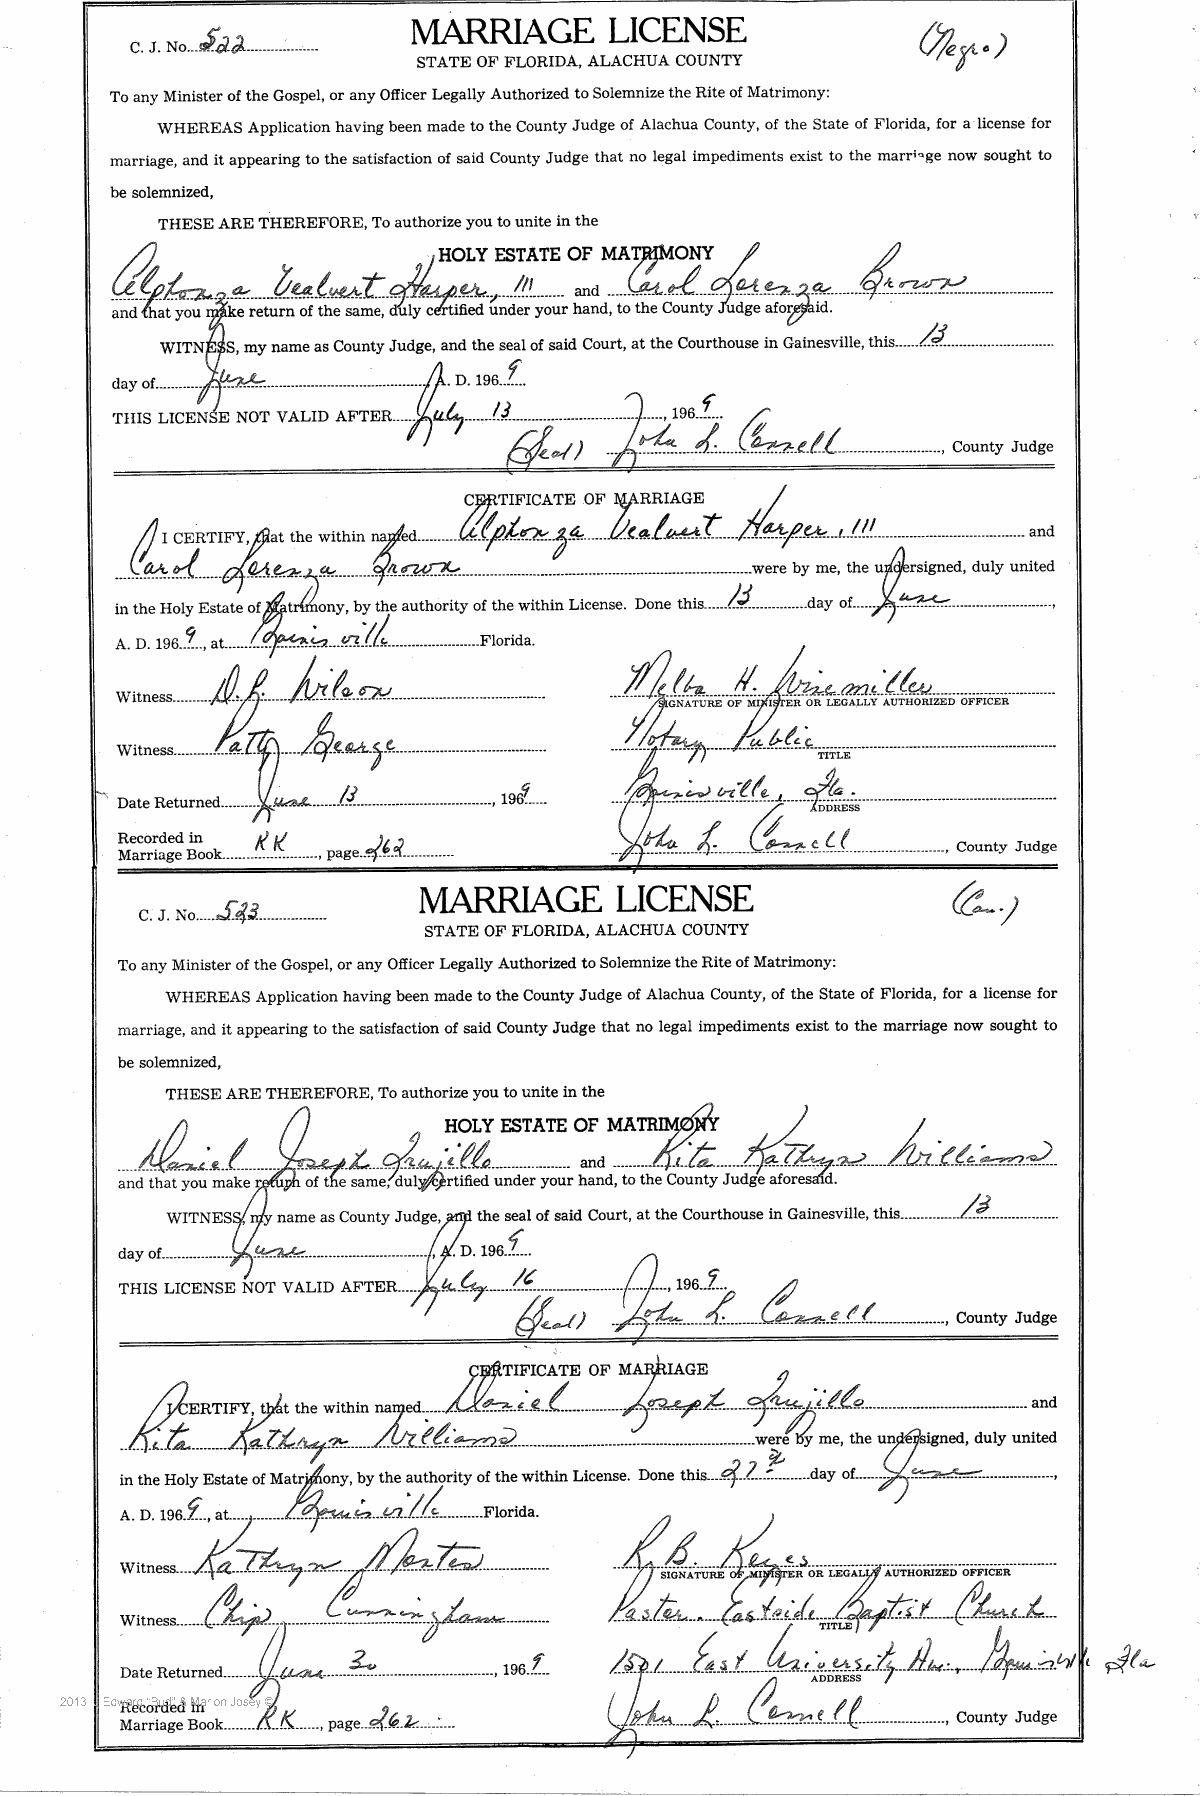 C. J. No. 522 MARRIAGE LICENSE (Negro)
STATE OF FLORIDA, ALACHUA COUNTY
To any Minister of the Gospel, or any Officer Legally Authorized to Solemnize the Rite of Matrimony:
WHEREAS Application having been made to the County Judge of Alachua County, of the State of Florida, for a license for
marriage, and it appearing to the satisfaction of said County Judge that no legal impediments exist to the marriage now sought to
be solemnized,
THESE ARE THEREFORE, To authorize you to unite in the
HOLY ESTATE OF MATRIMONY
Alphonza Vealvert Harper, III and Carol Lorenza Brown
and that you make return of the same, duly certified under your hand, to the County Judge aforesaid.
WITNESS, my name as County Judge, and the seal of said Court, at the Courthouse in Gainesville, this 13
day of June, A. D. 1969
THIS LICENSE NOT VALID AFTER July 13, 1969
(Seal) John L. Connell, County Judge
CERTIFICATE OF MARRIAGE
I CERTIFY, that the within named Alphonza Vealvert Harper, III and
Carol Lorenza Brown were by me, the undersigned, duly united
in the Holy Estate of Matrimony, by the authority of the within License. Done this 13 day of June,
A. D. 1969, at Gainisville Florida.
Witness D. L. Wilson Melba H. Winemiller
SIGNATURE OF MINISTER OR LEGALLY AUTHORIZED OFFICER
Witness Patty George Notary Public
TITLE
Date Returned June 13, 1969 Gainisville, Fla.
ADDRESS
Recorded in
Marriage Book KK, page 262 John L. Connell, County Judge
C. J. No. 523 MARRIAGE LICENSE (Cau.)
STATE OF FLORIDA, ALACHUA COUNTY
To any Minister of the Gospel, or any Officer Legally Authorized to Solemnize the Rite of Matrimony:
WHEREAS Application having been made to the County Judge of Alachua County, of the State of Florida, for a license for
marriage, and it appearing to the satisfaction of said County Judge that no legal impediments exist to the marriage now sought to
be solemnized,
THESE ARE THEREFORE, To authorize you to unite in the
HOLY ESTATE OF MATRIMONY
Daniel Joseph Trujillo and Rita Kathryn Williams
and that you make return of the same, duly certified under your hand, to the County Judge aforesaid.
WITNESS, my name as County Judge, and the seal of said Court, at the Courthouse in Gainesville, this 13
day of June, A. D. 1969
THIS LICENSE NOT VALID AFTER July 16, 1969
(Seal) John L. Connell, County Judge
CERTIFICATE OF MARRIAGE
I CERTIFY, that the within named Daniel Joseph Trujillo and
Rita Kathryn Williams were by me, the undersigned, duly united
in the Holy Estate of Matrimony, by the authority of the within License. Done this 27 day of June,
A. D. 1969, at Gainisville Florida.
Witness Kathryn R. B. Keyes
SIGNATURE OF MINISTER OR LEGALLY AUTHORIZED OFFICER
Witness Chip Cunningham Pastor. Eastside Baptist Church
TITLE
Date Returned June 30, 1969 1501 East University Av., Gainisville Fla
ADDRESS
2013 Edward "Bud" & Marion Josey ©
Recorded in
Marriage Book KK, page 262 John L. Connell, County Judge